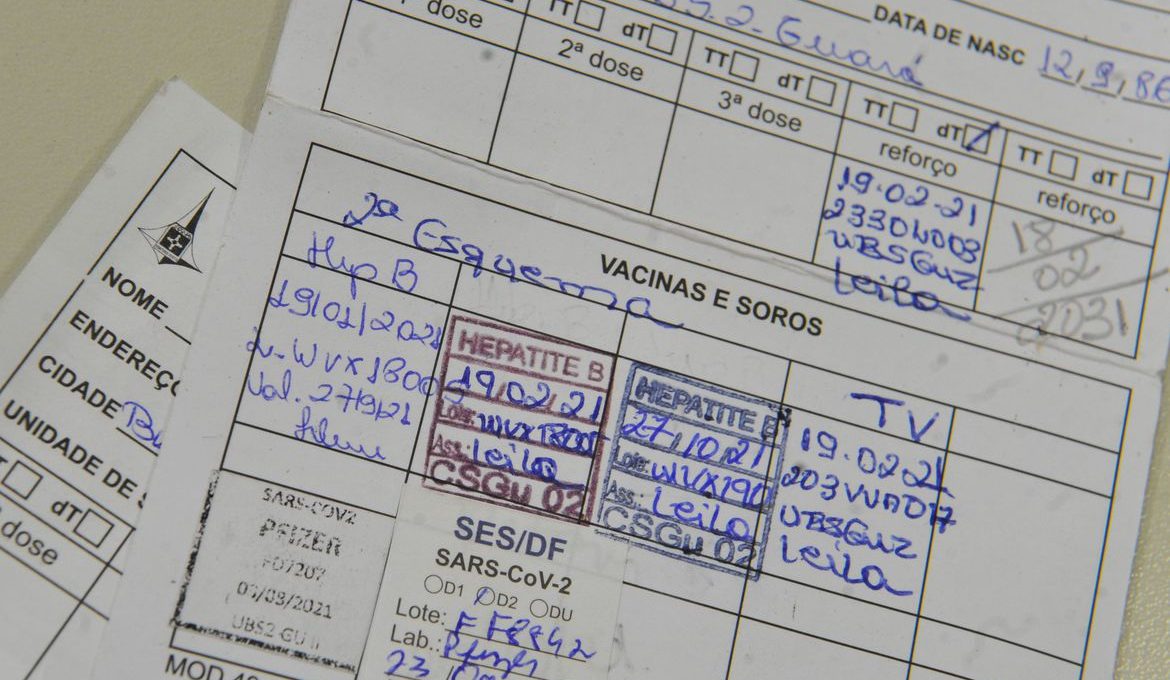 2. Guará
DATA DE NASC 12, 9, 86
dose
TT dT
2ª dose
TT dT
3ª dose
TT dT
reforço
19.02-21
UBSGU2
Leila
TT dT
reforço
18/
02
/2031
2º Esquema
VACINAS E SOROS
Hep B
19/01/2021
Val. 27/9/21
HEPATITE B
19/02/21
Lote:
Ass.: Leila
CSGu 02
HEPATITE B
27/10/21
Lote: WVX190
Ass.: Leila
CSGu 02
TV
19.0221
203VVA017
UBSGU2
Leila
SARS-COV2
PFIZER
UBS2-GU II
SES/DF
SARS-CoV-2
D1 D2 DU
Lote: FF8842
Lab.: Pfizer
23
MOD
NOME
ENDEREÇO
CIDADE
UNIDADE DE
dT
dose